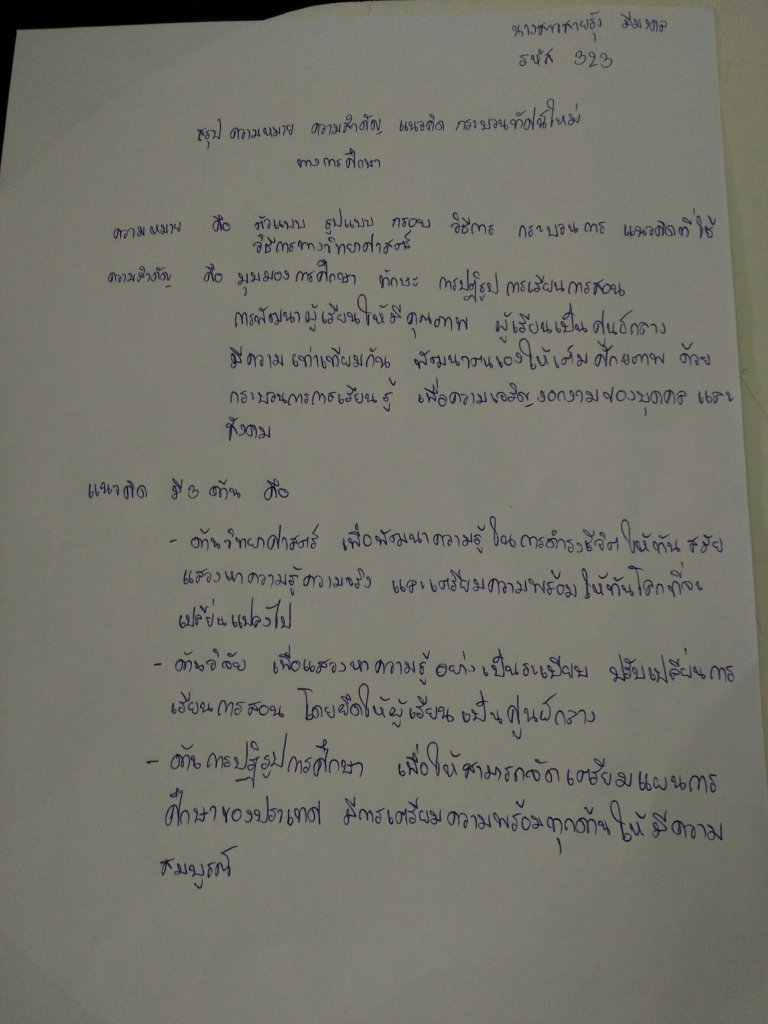 นางสาวสายรุ้ง มีมงคล
รหัส 323
สรุป ความหมาย ความสำคัญ แนวคิด กระบวนทัศน์ใหม่
ทางการศึกษา
ความหมาย คือ ตัวแบบ รูปแบบ กรอบ วิธีการ กระบวนการ แนวคิดที่ใช้
วิธีการทางวิทยาศาสตร์
ความสำคัญ คือ มุมมองการศึกษา ทักษะ การปฏิรูปการเรียนการสอน
การพัฒนาผู้เรียนให้มีคุณภาพ ผู้เรียนเป็นศูนย์กลาง
มีความเท่าเทียมกัน พัฒนาตนเองให้เต็มศักยภาพ ด้วย
กระบวนการการเรียนรู้ เพื่อความเจริญงอกงามของบุคคล และ
สังคม
แนวคิด มี 3 ด้าน คือ
- ด้านวิทยาศาสตร์ เพื่อพัฒนาความรู้ในการดำรงชีวิตให้ทันสมัย
แสวงหาความรู้ความจริง และเตรียมความพร้อมให้ทันโลกที่จะ
เปลี่ยนแปลงไป
- ด้านวิจัย เพื่อแสวงหาความรู้อย่างเป็นระเบียบ ปรับเปลี่ยนการ
เรียนการสอน โดยยึดให้ผู้เรียนเป็นศูนย์กลาง
- ด้านการปฏิรูปการศึกษา เพื่อให้สามารถจัดเตรียมแผนการ
ศึกษาของประเทศ มีการเตรียมความพร้อมทุกด้านให้มีความ
สมบูรณ์